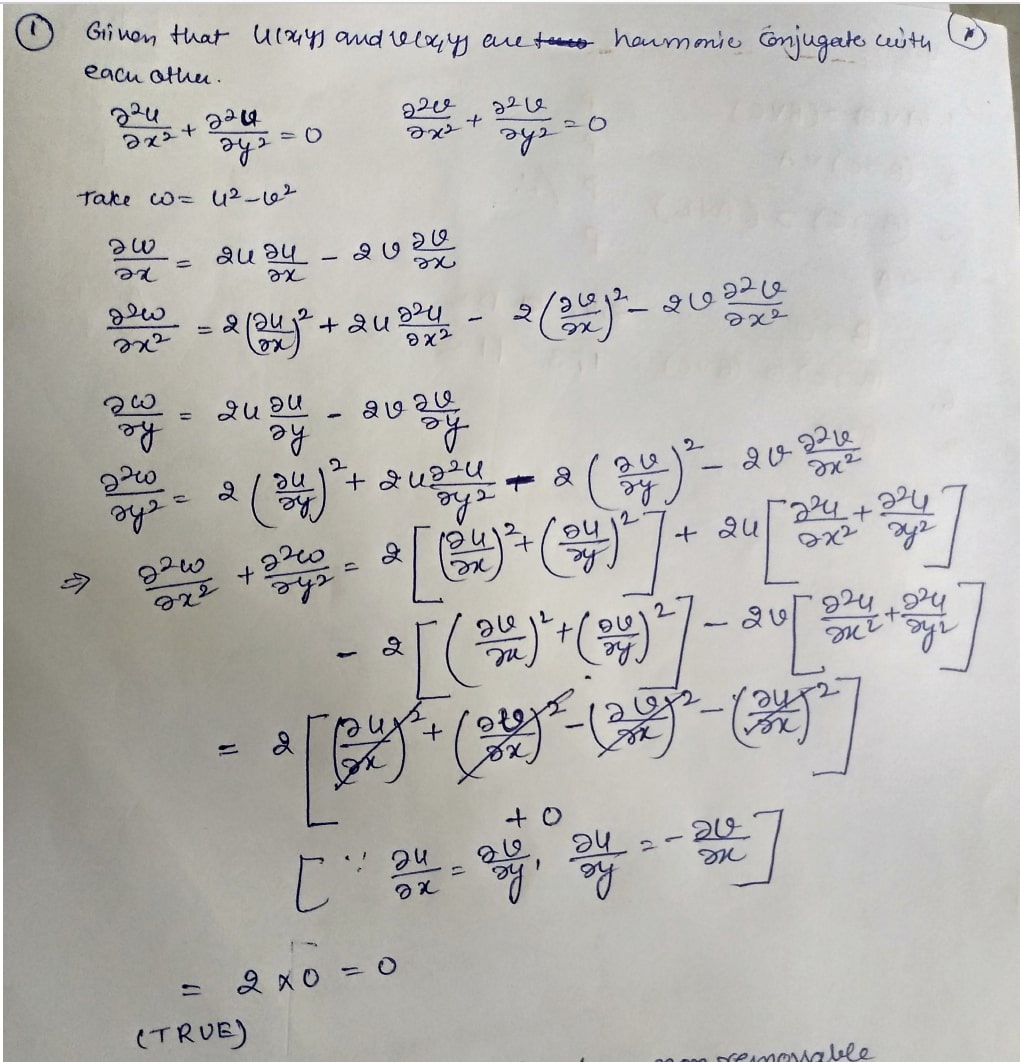 ① Given that u(x,y) and v(x,y) are harmonic Conjugate with
each other.
∂²u/∂x² + ∂²u/∂y² = 0    ∂²v/∂x² + ∂²v/∂y² = 0
Take ω = u² - v²
∂ω/∂x = 2u ∂u/∂x - 2v ∂v/∂x
∂²ω/∂x² = 2(∂u/∂x)² + 2u ∂²u/∂x² - 2(∂v/∂x)² - 2v ∂²v/∂x²
∂ω/∂y = 2u ∂u/∂y - 2v ∂v/∂y
∂²ω/∂y² = 2(∂u/∂y)² + 2u ∂²u/∂y² - 2(∂v/∂y)² - 2v ∂²v/∂x²
⇒ ∂²ω/∂x² + ∂²ω/∂y² = 2[(∂u/∂x)² + (∂u/∂y)²] + 2u[∂²u/∂x² + ∂²u/∂y²]
- 2[(∂v/∂x)² + (∂v/∂y)²] - 2v[∂²u/∂x² + ∂²u/∂y²]
= 2[(∂u/∂x)² + (∂v/∂x)² - (∂v/∂x)² - (∂u/∂x)²]
+ 0
[∵ ∂u/∂x = ∂v/∂y, ∂u/∂y = - ∂v/∂x]
= 2 × 0 = 0
(TRUE)
removable